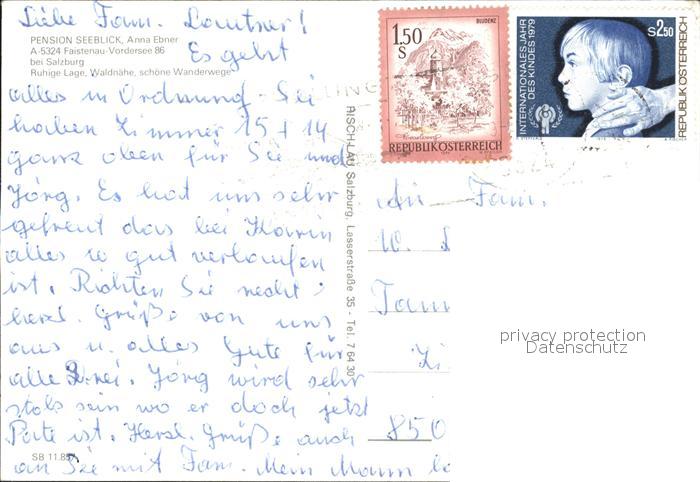 Liebe Fam. Lautner!
PENSION SEEBLICK, Anna Ebner
A-5324 Faistenau-Vordersee 86
bei Salzburg
Ruhige Lage, Waldnähe, schöne Wanderwege
Es geht
alles in Ordnung. Sei
haben Zimmer 15 + 14
ganz oben für Sie und
Jörg. Es hat uns sehr
gefreut das bei Karin
alles so gut verlaufen
ist. Richten Sie recht
herzl. Grüße von uns
aus u. alles Gute für
alle Drei. Jörg wird sehr
stolz sein wo er doch jetzt
Pate ist. Herzl. Grüße auch
an Sie mit Fam. Mein Mann
SB 11.857
RISCH-LAU Salzburg, Lasserstraße 35 - Tel. 7 64 30
1.50
S
BLUDENZ
REPUBLIK ÖSTERREICH
INTERNATIONALES JAHR
DES KINDES 1979
S2.50
REPUBLIK ÖSTERREICH
An Fam.
W.
850
privacy protection
Datenschutz